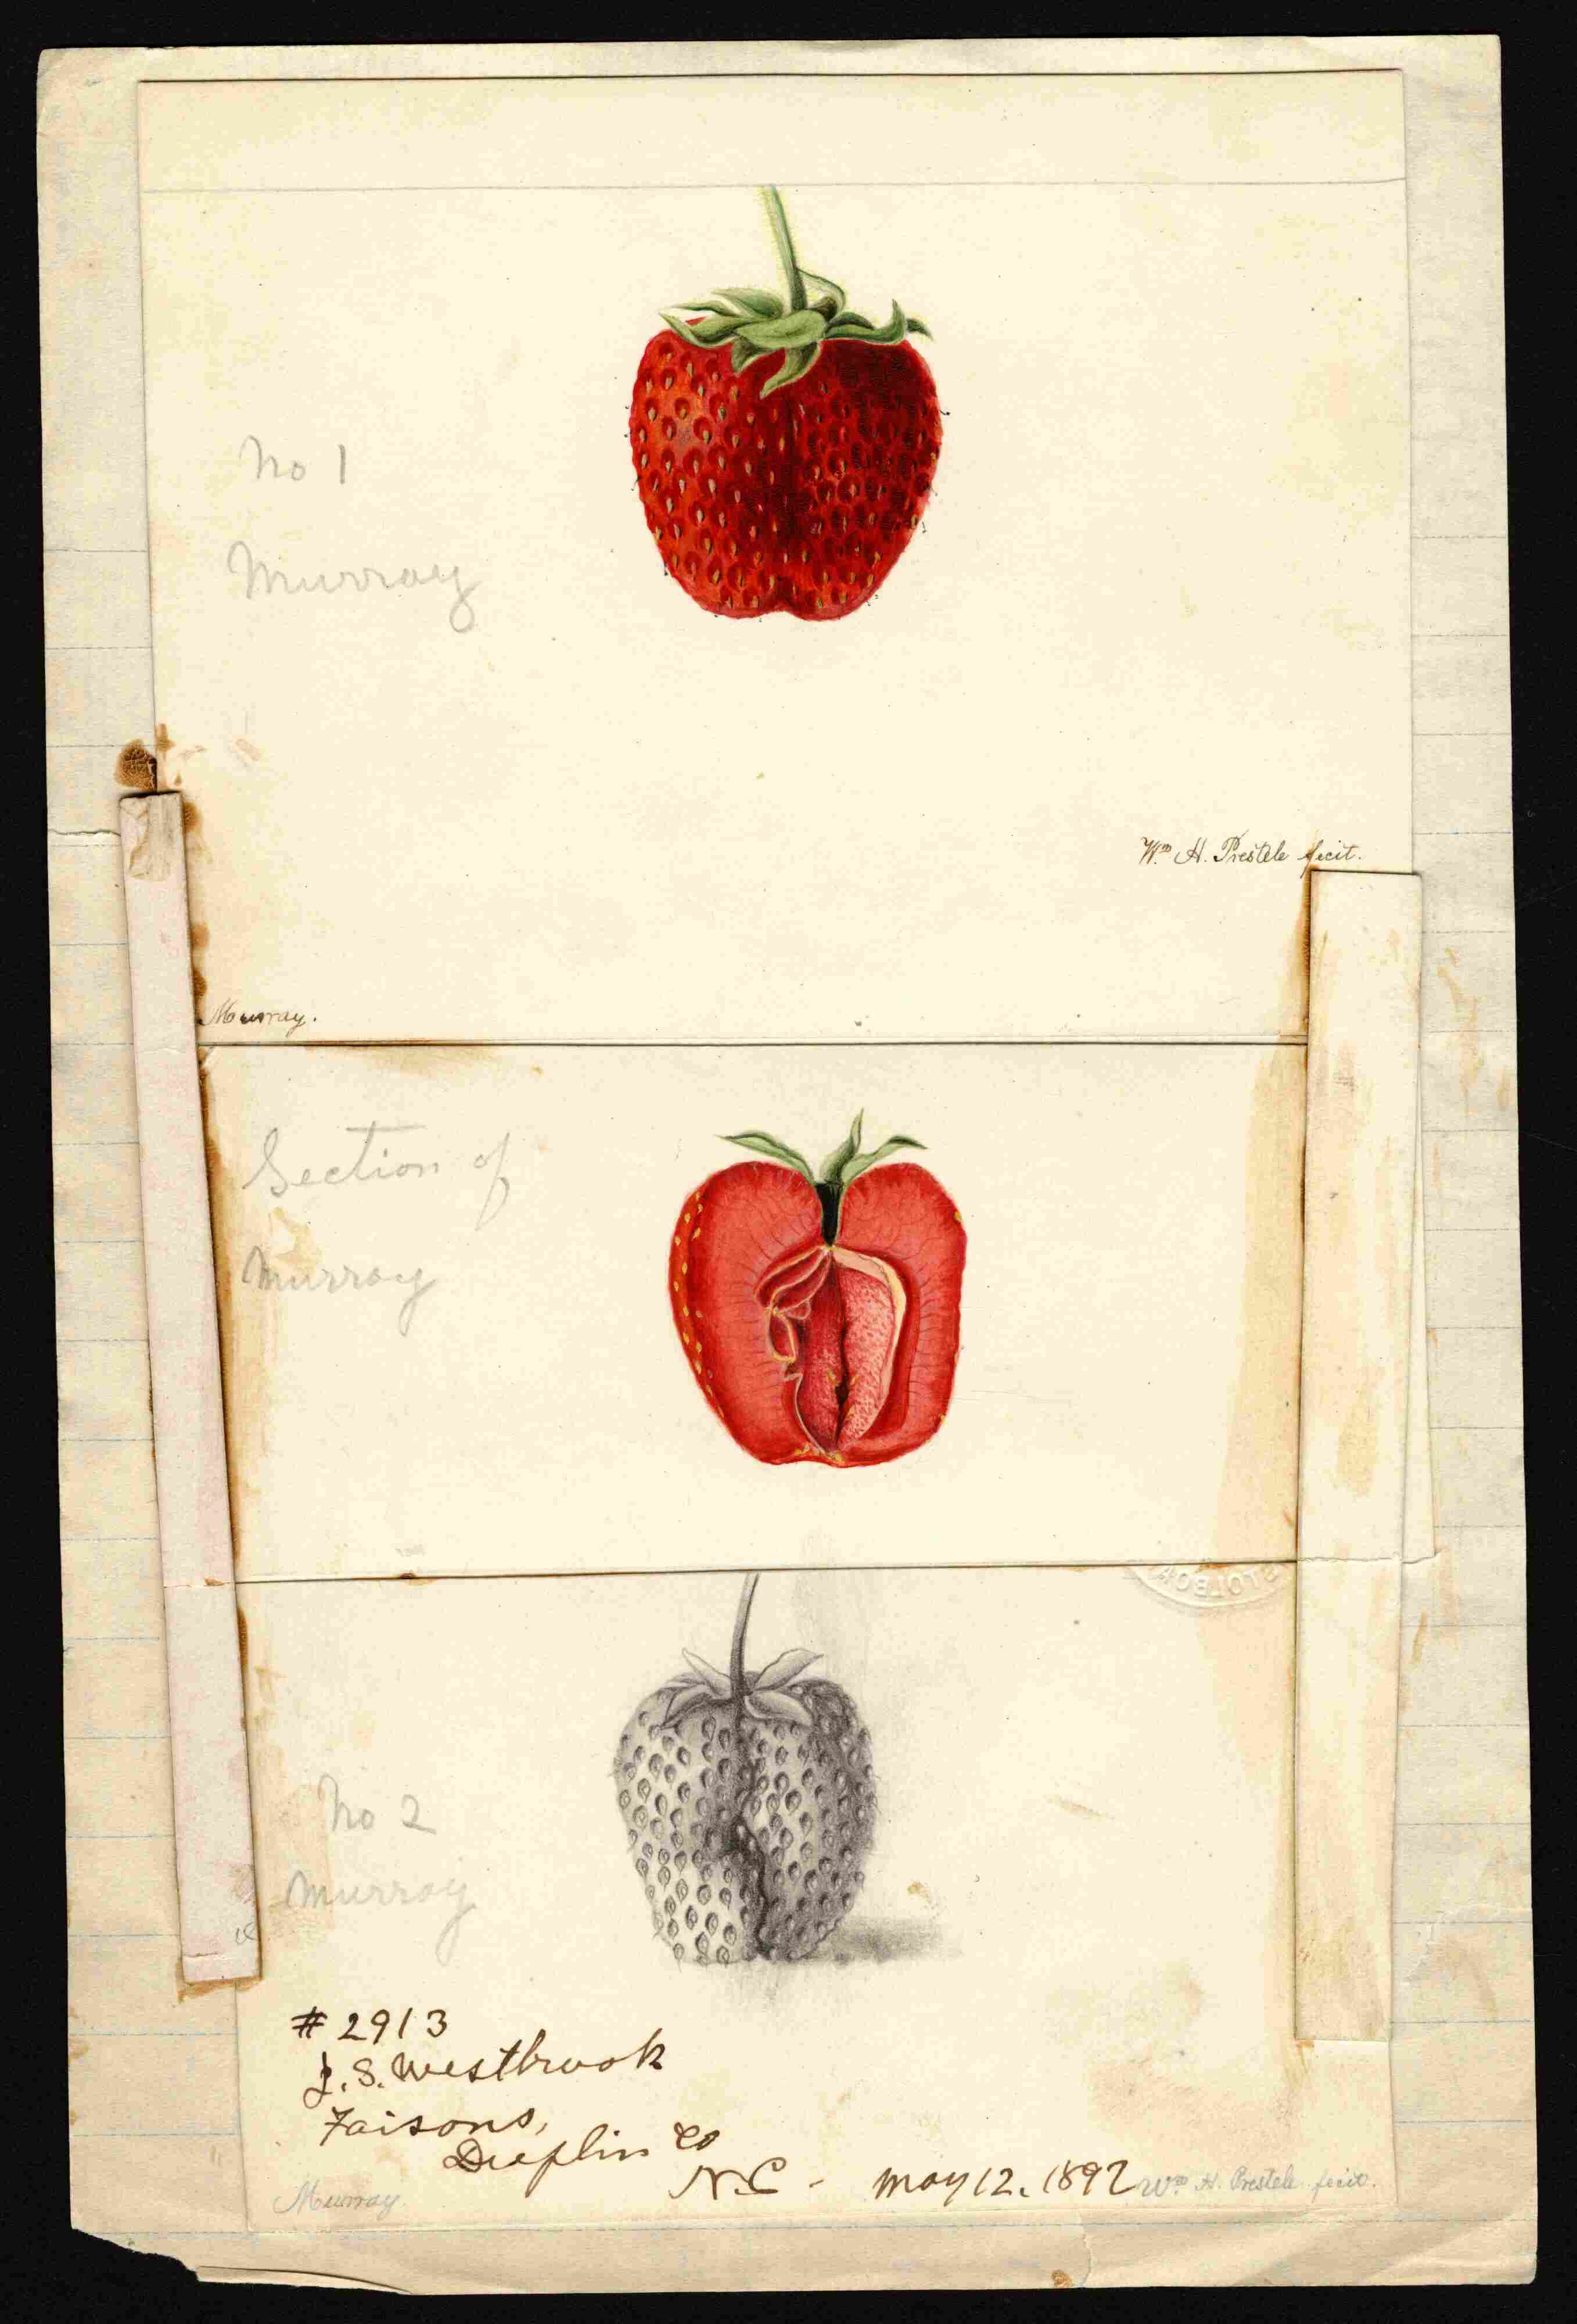 No 1
Murray
Wm H. Prestele fecit.
Murray.
Section of
Murray
No 2
Murray
# 2913
J. S. Westbrook
Faisons,
Duplin Co
N.C - May 12. 1892
Murray.
Wm H. Prestele fecit.